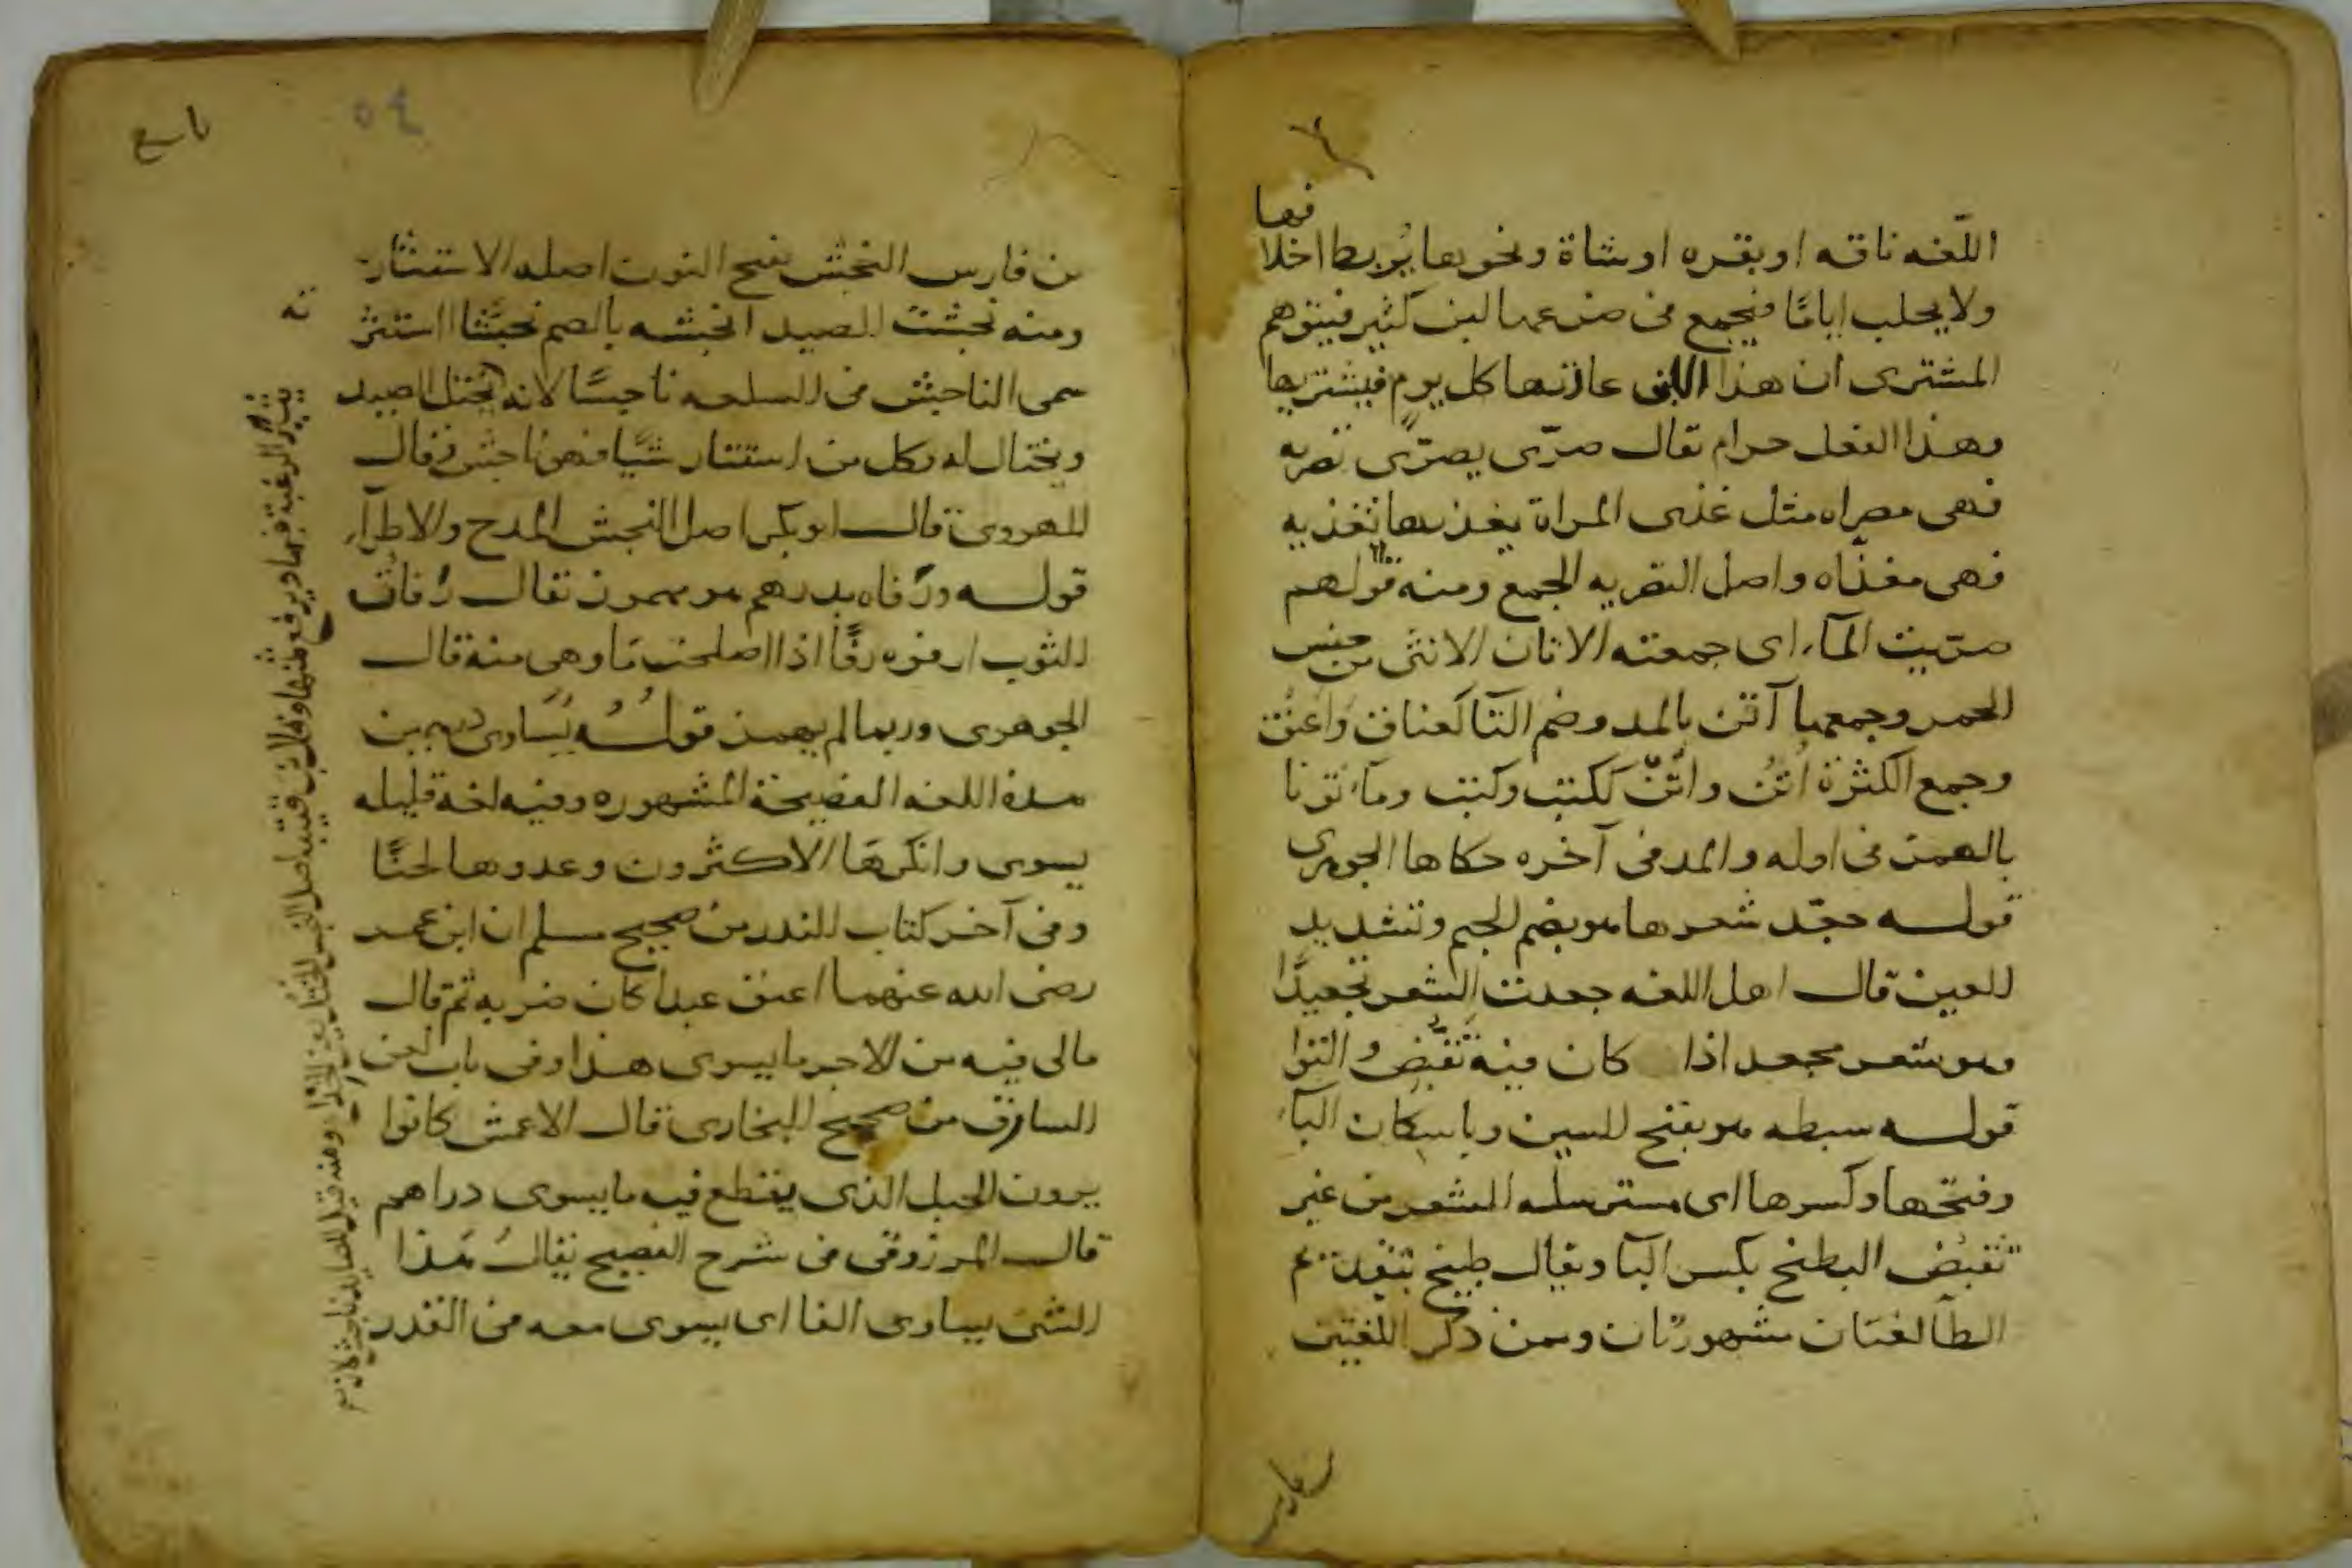 اللغه ناقه او بقره او شاة ونحوها يُربط اخلا
فها
ولا يحلب ايامًا فيجمع فى ضرعها لبن كثير فيتوهم
المشترى ان هذا اللبن عادتها كل يوم فيشتريها
وهذا الفعل حرام يقال صرّى يصرّى تصريه
فهى مصراه مثل غذى المراة يغذيها تغذيه
فهى مغذّاه واصل التصريه الجمع ومنه قولهم
صرّيت المآء اى جمعته الاتان الانثى من جنس
الحمر وجمعها آتن بالمد وضم التآ كعناق واعنق
وجمع الكثرة اُتُن واتْن ككتب وكتب وماتونا
بالهمز فى اوله والمد فى آخره حكاها الجوهرى
قوله جعّد شعرها هو بضم الجيم وتشديد
العين قال اهل اللغه جعدت الشعر تجعيدًا
وهو شعر مجعد اذا كان فيه تقبّض والتوا
قوله سبطه هو بفتح السين وباسكان البآء
وفتحها وكسرها اى مسترسله الشعر من غير
تقبّض البطيخ بكسر البآ ويقال طبيخ بتقديم
الطآ لغتان مشهورتان وممن ذكر اللغتين
بن فارس
٥٤
تاسع
بن فارس النجش بفتح النون اصله الاستثار
ته
ومنه نجشت الصيد انجشه بالضم نجشًا استثر
سمى الناجش فى السلعه ناجشًا لانه يختل الصيد
ويختال له وكل من استثار شيًا فهو ناجش وقال
الهروى قال ابو بكر اصل النجش المدح والاطرآء
قوله ورفاه بدرهم هو مهموز يقال رفات
الثوب ارفوه رفًا اذا اصلحت ما وهى منه قال
الجوهرى وربما لم يهمز قولُهُ يُسَاوى درهمين
هذه اللغه الفصيحة المشهوره وفيه لغه قليله
يسوى وانكرها الاكثرون وعدوها لحنًا
وفى آخر كتاب النذر من صحيح مسلم ان ابن عمر
رضى الله عنهما اعتق عبدا كان ضربه ثم قال
مالى فيه من الاجر ما يسوى هذا وفى باب لعن
السارق من صحيح البخارى قال الاعمش كانوا
يرون الحبل الذى يقطع فيه ما يسوى دراهم
قال المرزوقى فى شرح الفصيح يقال هذا
الشى يساوى الفا اى يسوى معه فى القدر
يثير الرغبة فيها ويرفع ثمنها وقال ابن قتيبه اصل النجش الختل ومنه قيل للصايد ناجش لانه